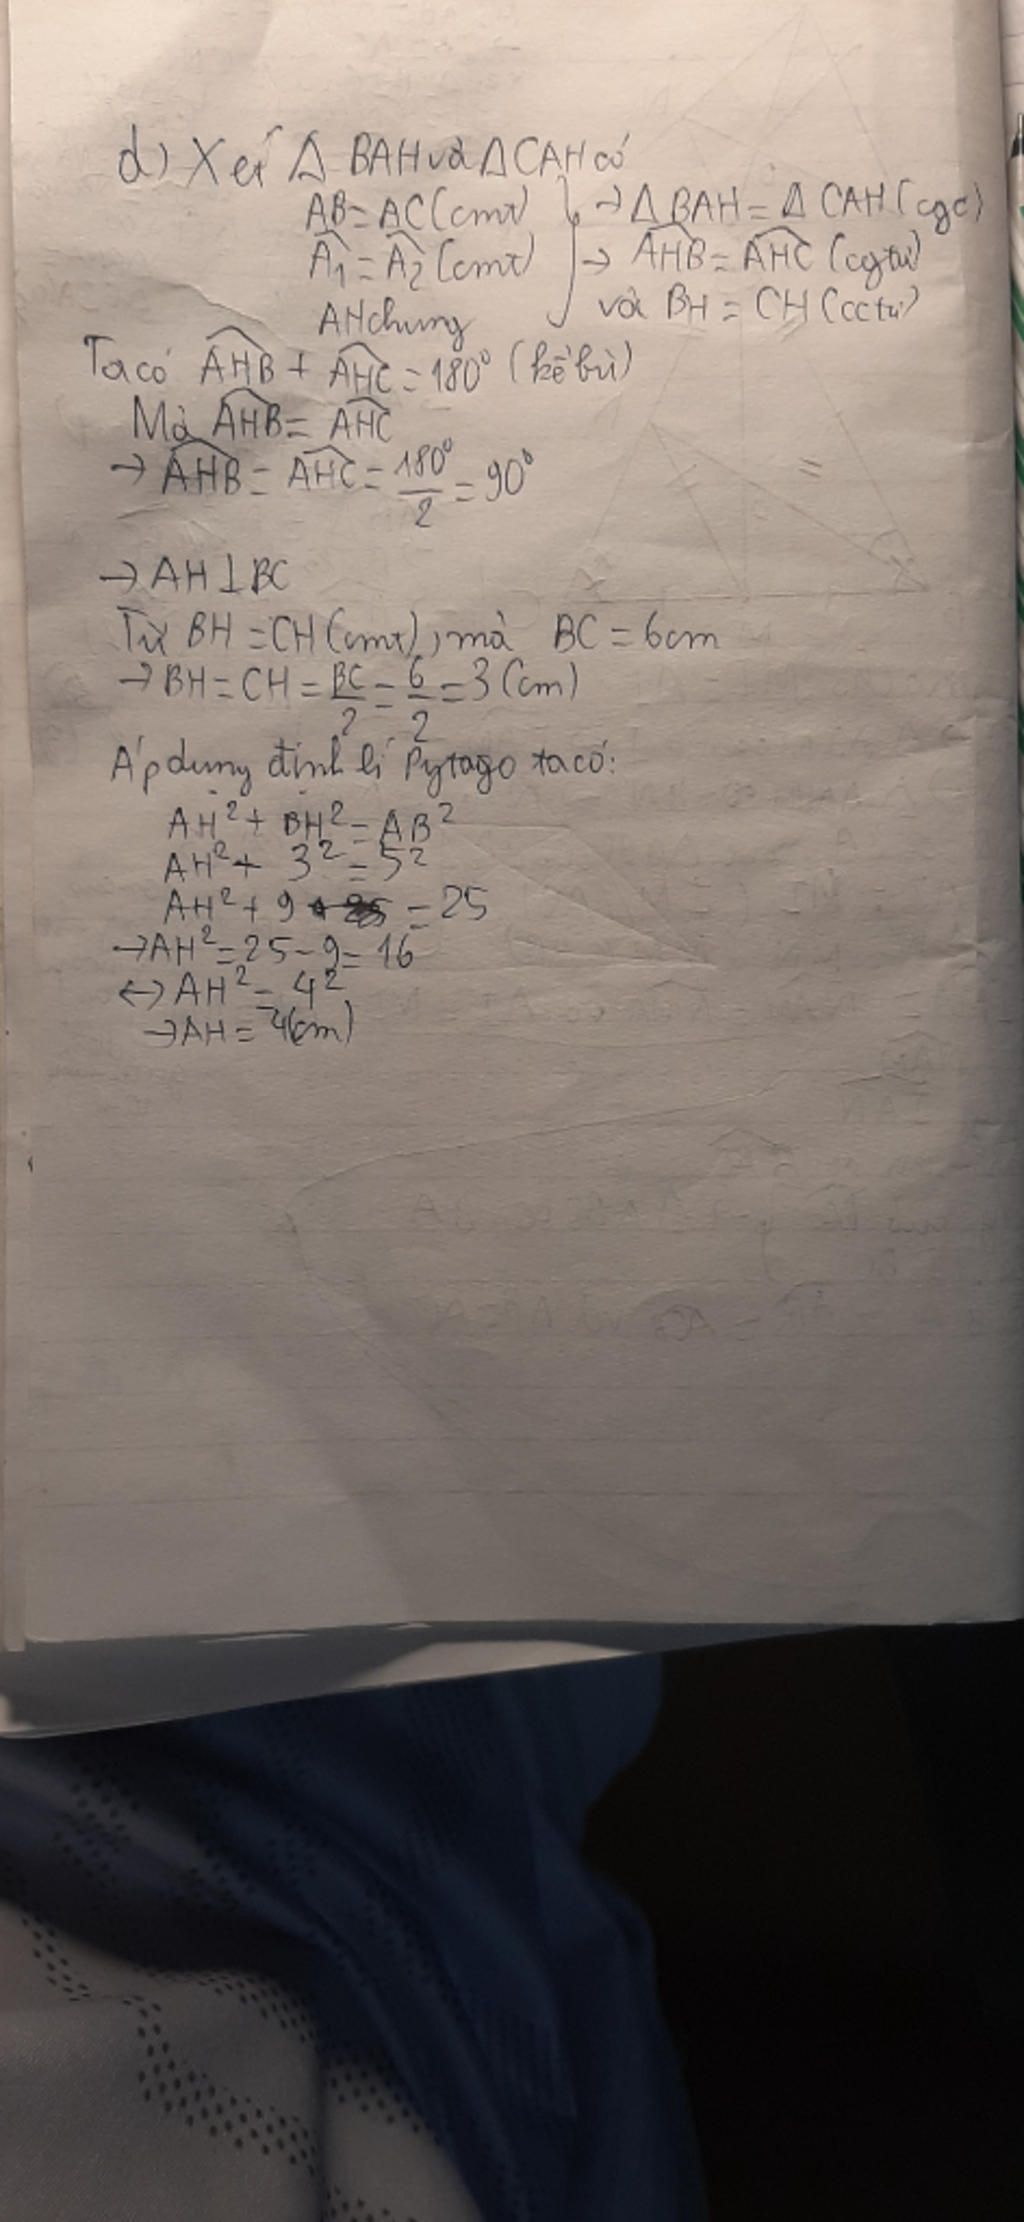 d) Xét Δ BAH và Δ CAH có
AB = AC (cmt) } → Δ BAH = Δ CAH (cgc)
Â₁ = Â₂ (cmt) → AHB = AHC (cgtư)
AH chung và BH = CH (cctư)
Ta có AHB + AHC = 180° (kề bù)
Mà AHB = AHC
→ AHB = AHC = 180°/2 = 90°
→ AH ⊥ BC
Từ BH = CH (cmt), mà BC = 6cm
→ BH = CH = BC/2 = 6/2 = 3 (cm)
Áp dụng định lí Pytago ta có:
AH² + BH² = AB²
AH² + 3² = 5²
AH² + 9 = 25
→ AH² = 25 - 9 = 16
↔ AH² = 4²
→ AH = 4(cm)